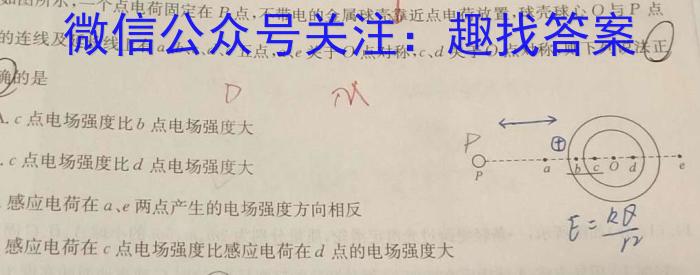 如图所示,一个点电荷固定在P点,不带电的金属球壳靠近点电荷放置,球壳球心O与P点
的连线及 五点, e关于O点对称,c、d关于O点对称,则下列说法正
微信公众号关注:趣找答案
确的是
A. c点电场强度比b点电场强度大
. c点电场强度比d点电场强度大
. 感应电荷在a、e两点产生的电场强度方向相反
感应电荷在c点电场强度比感应电荷在d点的电场强度大
D
P
+
P a b c O d e
E = kQ/r²